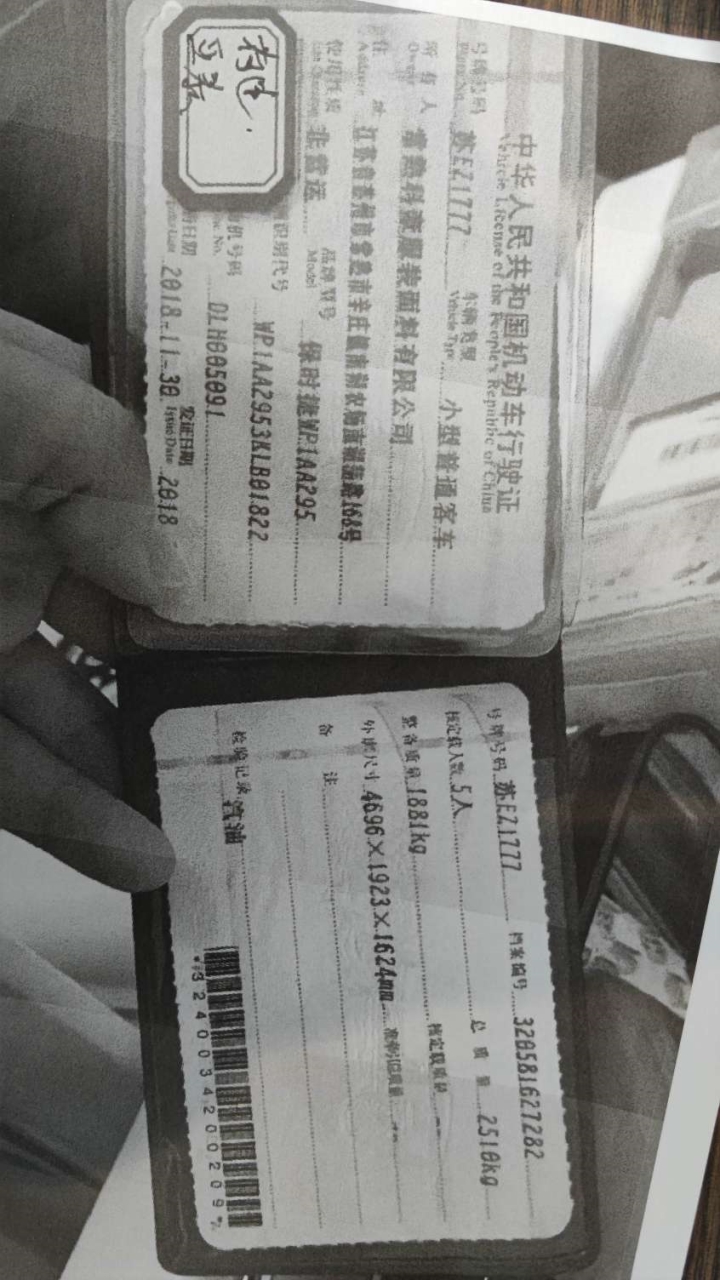 中华人民共和国机动车行驶证
Vehicle License of the People's Republic of China
号牌号码 苏EZ1777 车辆类型 小型普通客车
Plate No. Vehicle Type
所有人 常熟科菱服装面料有限公司
Owner
住址 江苏省苏州市常熟市辛庄镇
Address
使用性质 非营运 品牌型号 保时捷WP1AA295
Use Character Model
识别代号 WP1AA2953KLB01822
机号码 DLH005091
No.
日期 2018-11-30 发证日期 2018
Issue Date
号牌号码 苏EZ1777 档案编号 320581627282
核定载人数 5人 总质量 2510kg
整备质量 1881kg 核定载质量 --
外廓尺寸 4696×1923×1624mm 准牵引总质量 --
备注
检验记录 汽油
*3240034200209*